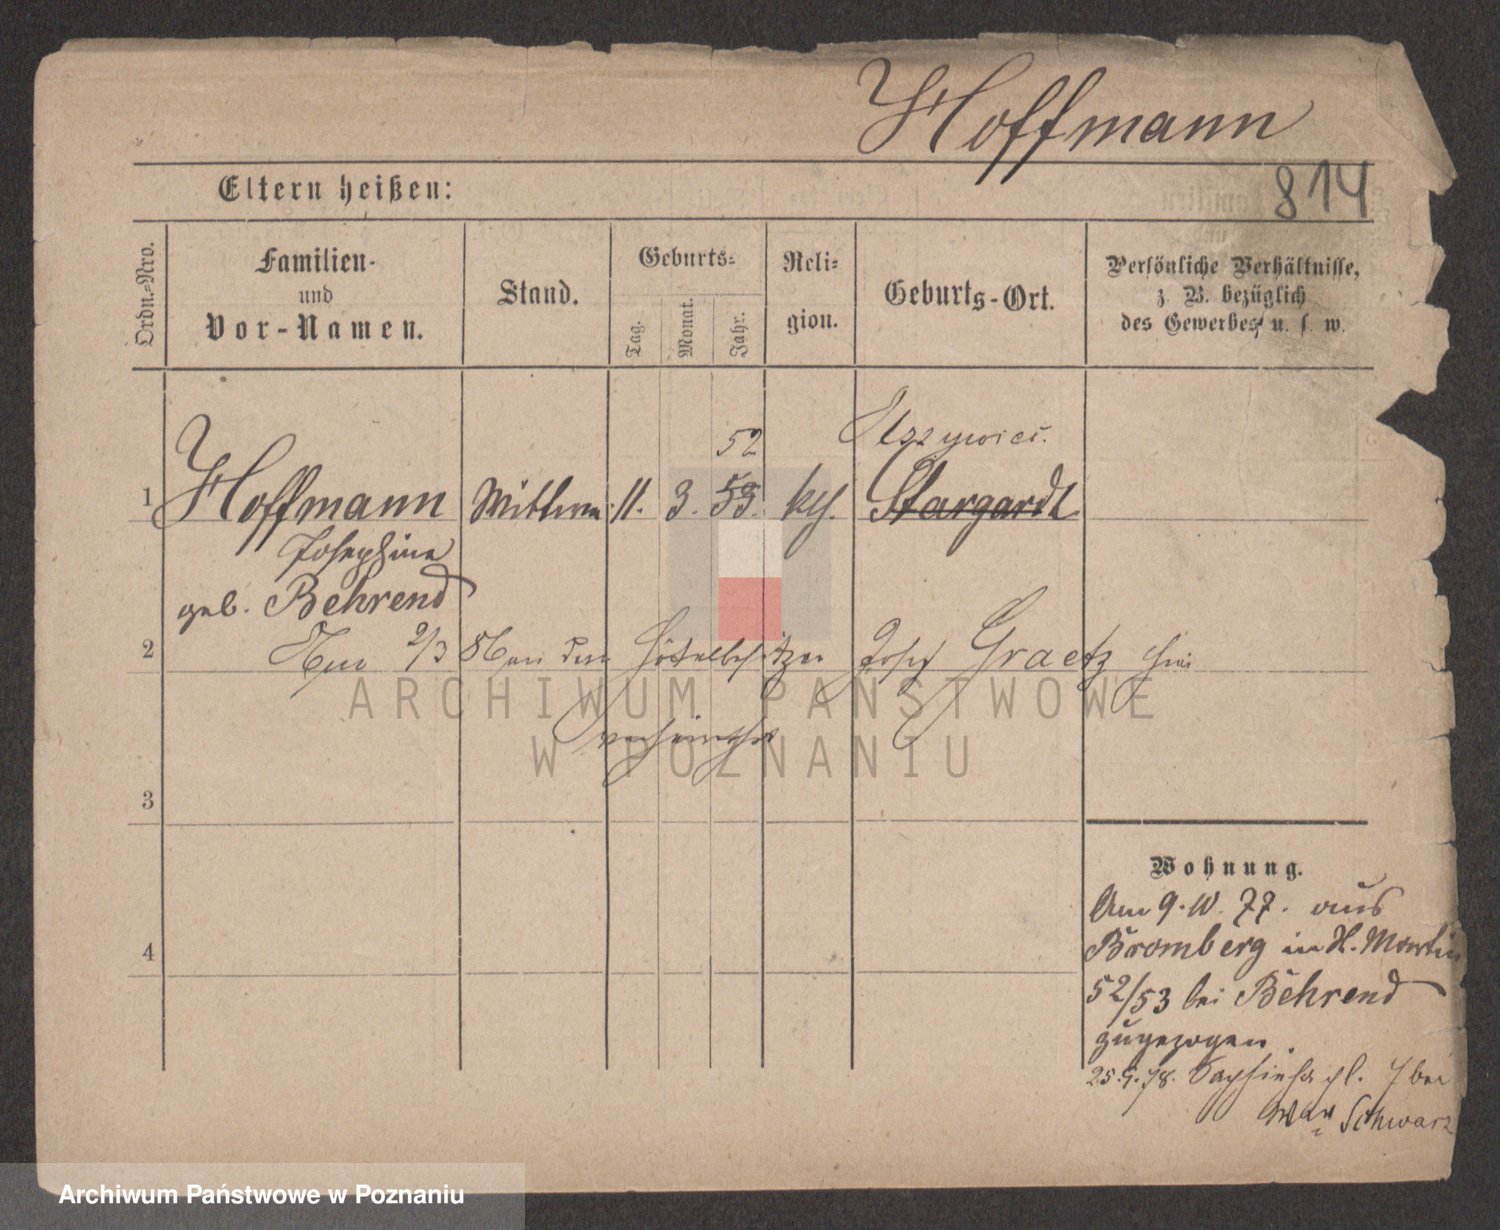 Hoffmann
814
Eltern heißen:
Ordn.-Nro.
Familien-
und
Vor-Namen.
Stand.
Geburts-
Tag.
Monat.
Jahr.
Reli-
gion.
Geburts-Ort.
Persönliche Verhältnisse,
z. B. bezüglich
des Gewerbes u. s. w.
52
1 Hoffmann Wittwe 11. 3. 53. kth. Stargardt
Josephine
geb. Behrend
2 2/3 Josef Graetz
3
Wohnung.
Am 9. 10. 77. aus
Bromberg in St. Martin
52/53 bei Behrend
zugezogen.
4
25.9.78. Sapiehapl. 7 bei
Schwarz
ARCHIWUM PAŃSTWOWE
W POZNANIU
Archiwum Państwowe w Poznaniu